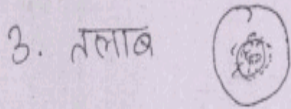 3. तलाब